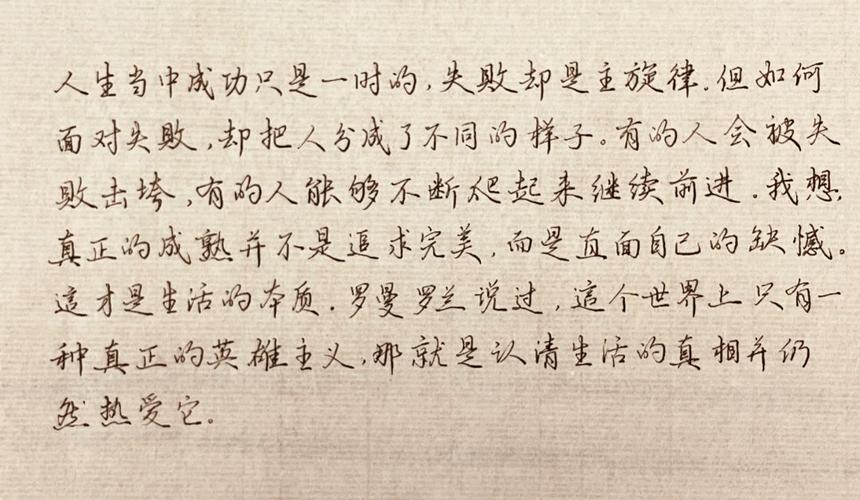 人生当中成功只是一时的,失败却是主旋律.但如何
面对失败,却把人分成了不同的样子。有的人会被失
败击垮,有的人能够不断爬起来继续前进.我想,
真正的成熟并不是追求完美,而是直面自己的缺憾。
這才是生活的本质.罗曼罗兰说过,這个世界上只有一
种真正的英雄主义,那就是认清生活的真相并仍
然热爱它。